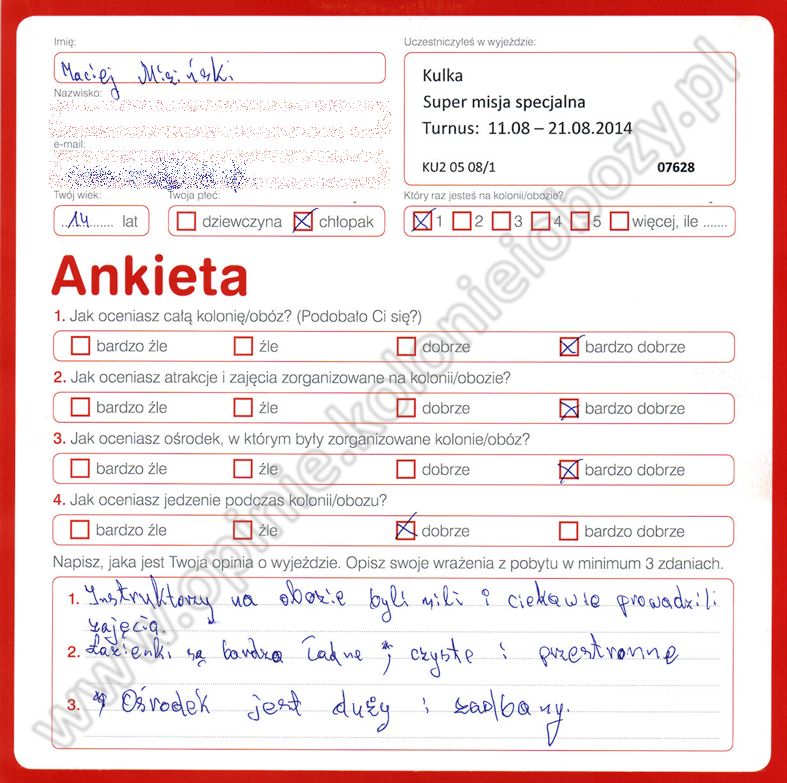 Imię:
Maciej Misiński
Nazwisko:
e-mail:
Twój wiek:
14 lat
Twoja płeć:
dziewczyna chłopak
Uczestniczyłeś w wyjeździe:
Kulka
Super misja specjalna
Turnus: 11.08 – 21.08.2014
KU2 05 08/1 07628
Który raz jesteś na kolonii/obozie?
1 2 3 4 5 więcej, ile .......
Ankieta
1. Jak oceniasz całą kolonię/obóz? (Podobało Ci się?)
bardzo źle źle dobrze bardzo dobrze
2. Jak oceniasz atrakcje i zajęcia zorganizowane na kolonii/obozie?
bardzo źle źle dobrze bardzo dobrze
3. Jak oceniasz ośrodek, w którym były zorganizowane kolonie/obóz?
bardzo źle źle dobrze bardzo dobrze
4. Jak oceniasz jedzenie podczas kolonii/obozu?
bardzo źle źle dobrze bardzo dobrze
Napisz, jaka jest Twoja opinia o wyjeździe. Opisz swoje wrażenia z pobytu w minimum 3 zdaniach.
1. Instruktorzy na obozie byli mili i ciekawie prowadzili
zajęcia.
2. Łazienki są bardzo ładne, czyste i przestronne
3. Ośrodek jest duży i zadbany.
www.opinie.kolonieiobozy.pl